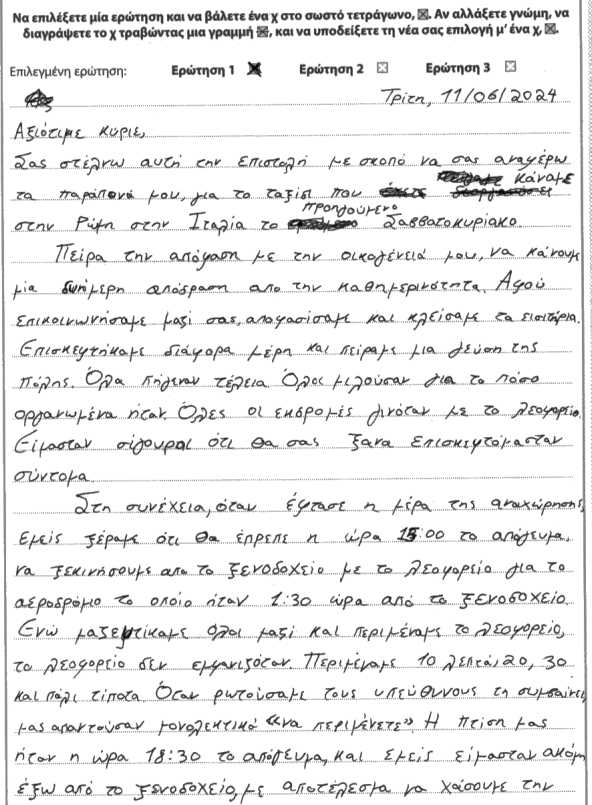 Να επιλέξετε μία ερώτηση και να βάλετε ένα χ στο σωστό τετράγωνο, ☒. Αν αλλάξετε γνώμη, να
διαγράψετε το χ τραβώντας μια γραμμή ☒, και να υποδείξετε τη νέα σας επιλογή μ' ένα χ, ☒.
Επιλεγμένη ερώτηση: Ερώτηση 1 ☒ Ερώτηση 2 ☒ Ερώτηση 3 ☒
Τρίτη, 11/06/2024
Αξιότιμε κύριε,
Σας στέλνω αυτή την επιστολή με σκοπό να σας αναφέρω
τα παράπονά μου, για το ταξίσι που κάναμε
στην Ρώμη στην Ιταλία το προηγούμενο Σαββατοκυρίακο.
Πείρα την απόφαση με την οικογένειά μου, να κάνουμε
μία διήμερη απόδραση απο την καθημερινότητα. Αφού
επικοινωνήσαμε μαζί σας, αποφασίσαμε και κλείσαμε τα εισιτήρια.
Επισκεφτήκαμε διάφορα μέρη και πείραμε μια γεύση της
πόλης. Όλα πήγεναν τέλεια. Όλοι μιλούσαν για το πόσο
οργανωμένα ήταν. Όλες οι εκδρομές γινόταν με το λεοφορείο.
Είμασταν σίγουροι ότι θα σας ξανα επισκεφτόμασταν
σύντομα.
Στη συνέχεια, όταν έφτασε η μέρα της αναχώρησης,
εμείς ξέραμε ότι θα έπρεπε η ώρα 15:00 το απόγευμα,
να ξεκινήσουμε απο το ξενοδοχείο με το λεοφορείο για το
αεροδρόμιο το οποίο ήταν 1:30 ώρα από το ξενοδοχείο.
Ενώ μαζευτίκαμε όλοι μαζί και περιμέναμε το λεοφορείο,
το λεοφορείο δεν εμφανιζόταν. Περιμέναμε 10 λεπτά, 20, 30
και πάλι τίποτα. Όταν ρωτούσαμε τους υπεύθυνους τη συμβαίνει,
μας απαντούσαν μονολεκτικά «να περιμένετε». Η πτίση μας
ήταν η ώρα 18:30 το απόγευμα, και εμείς είμασταν ακόμη
έξω από το ξενοδοχείο, με αποτέλεσμα να χάσουμε την